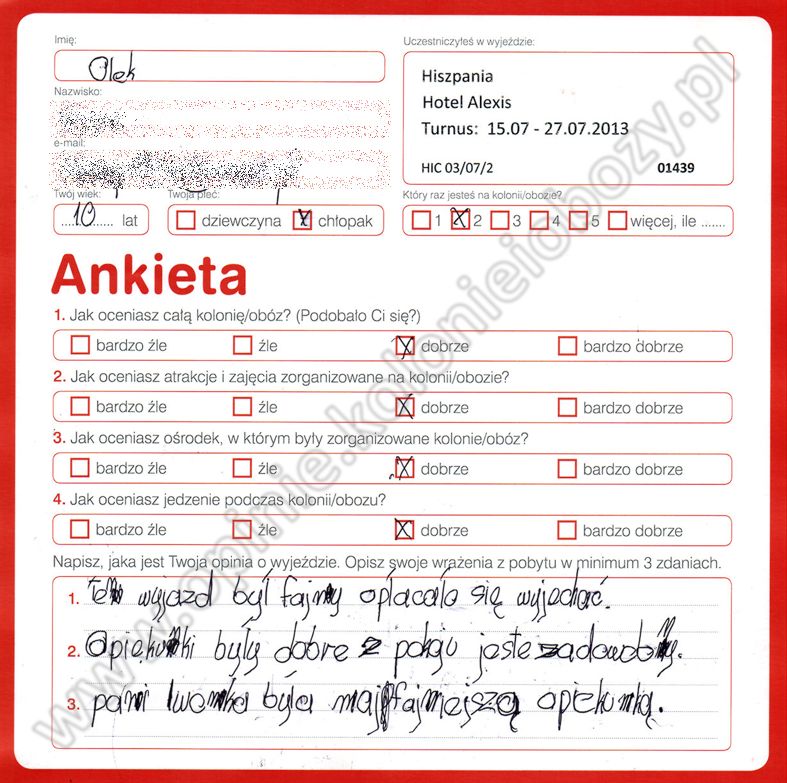 Imię:
Olek
Uczestniczyłeś w wyjeździe:
Hiszpania
Hotel Alexis
Turnus: 15.07 - 27.07.2013
HIC 03/07/2 01439
Nazwisko:
e-mail:
Twój wiek: Twoja płeć:
10 lat dziewczyna X chłopak
Który raz jesteś na kolonii/obozie?
1 X 2 3 4 5 więcej, ile .......
Ankieta
1. Jak oceniasz całą kolonię/obóz? (Podobało Ci się?)
bardzo źle źle X dobrze bardzo dobrze
2. Jak oceniasz atrakcje i zajęcia zorganizowane na kolonii/obozie?
bardzo źle źle X dobrze bardzo dobrze
3. Jak oceniasz ośrodek, w którym były zorganizowane kolonie/obóz?
bardzo źle źle X dobrze bardzo dobrze
4. Jak oceniasz jedzenie podczas kolonii/obozu?
bardzo źle źle X dobrze bardzo dobrze
Napisz, jaka jest Twoja opinia o wyjeździe. Opisz swoje wrażenia z pobytu w minimum 3 zdaniach.
1. Ten wyjazd był fajny opłacało się wyjechać.
2. Opiekunki były dobre z pokoju jeste zadowolony.
3. pani Iwonka była najfajniejszą opiekunką.
www.opinie.kolonieiobozy.pl